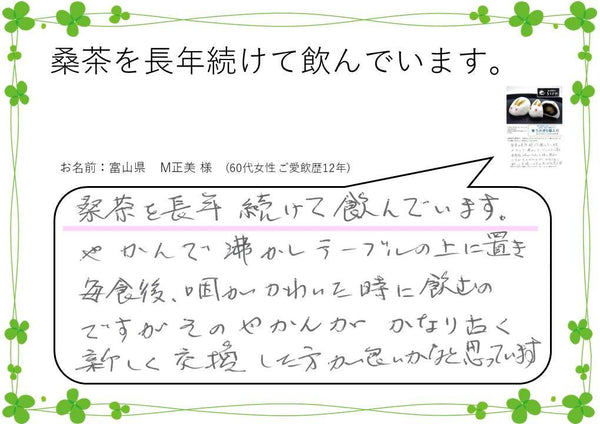 桑茶を長年続けて飲んでいます。
お名前：富山県　M正美 様　(60代女性 ご愛飲歴12年)
桑茶を長年 続けて飲んでいます。
やかんで沸かしテーブルの上に置き
毎食後、咽がかわいた時に飲むの
ですがそのやかんが かなり古く
新しく交換した方が良いかなと思っています